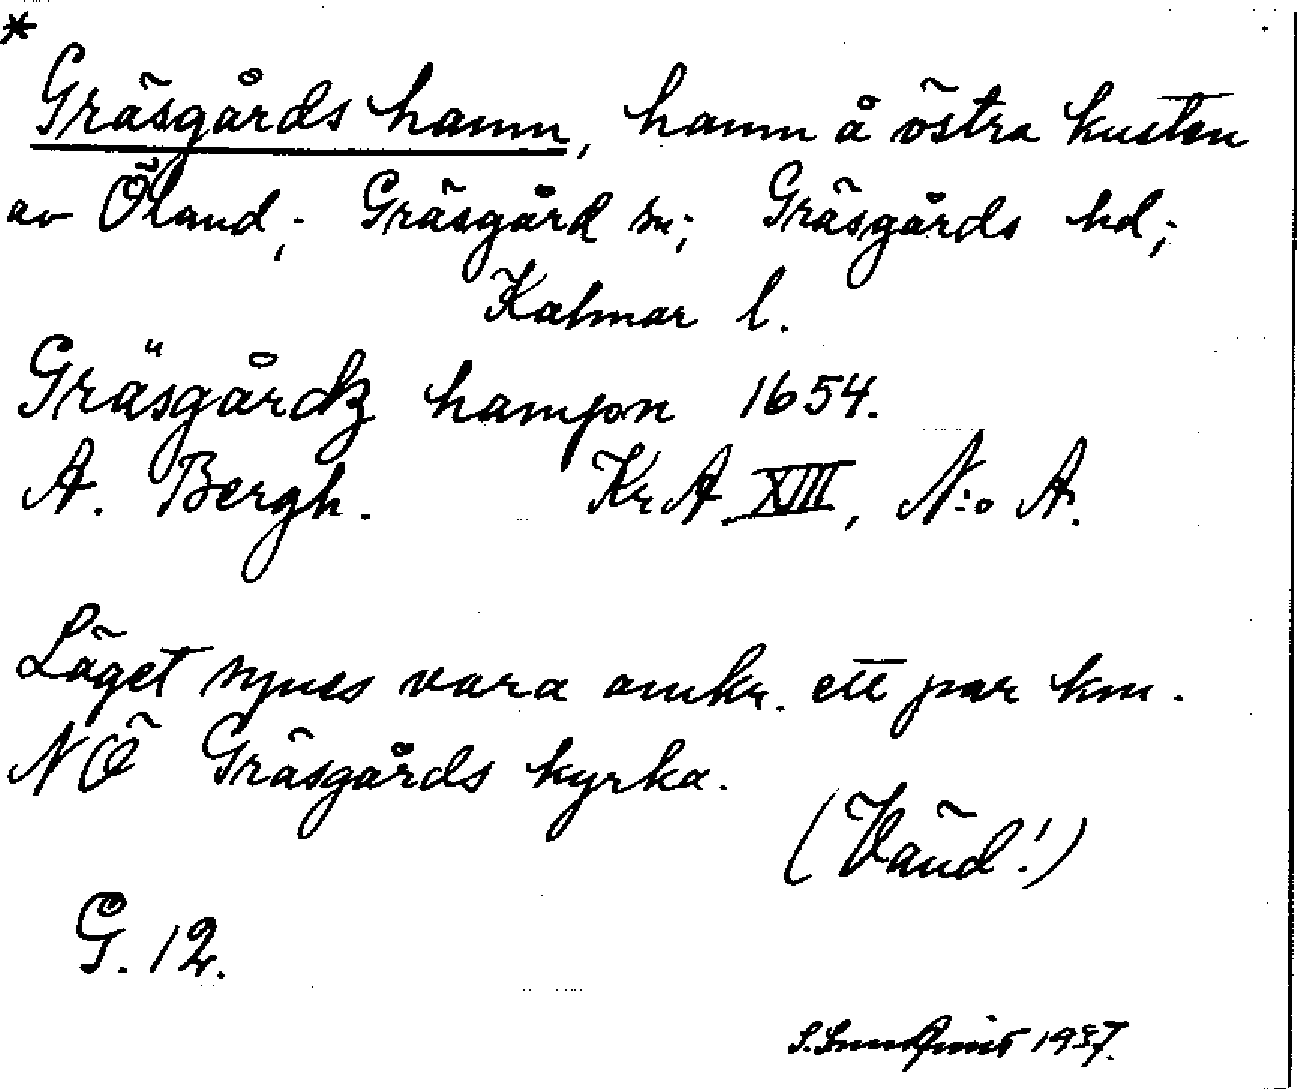 *
Gräsgårds hamn, hamn å östra kusten
av Öland; Gräsgård sn; Gräsgårds hd;
Kalmar l.
Gräsgårdz hampn 1654.
A. Bergh. KrA XIII, N:o A.
Läget synes vara omkr. ett par km.
NÖ Gräsgårds kyrka.
(Vänd!)
G. 12.
1937.